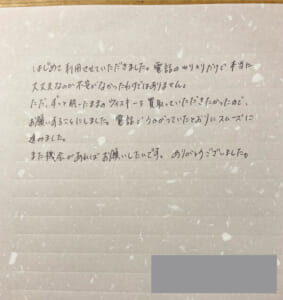 はじめて利用させていただきました。電話のやりとりだけで本当に
大丈夫なのか不安がなかったわけではありません。
ただ、ずっと眠ったままのウィスキーを買取っていただきたかったので、
お願いすることにしました。電話でうかがっていたとおりにスムーズに
進みました。
また機会があればお願いしたいです。ありがとうございました。